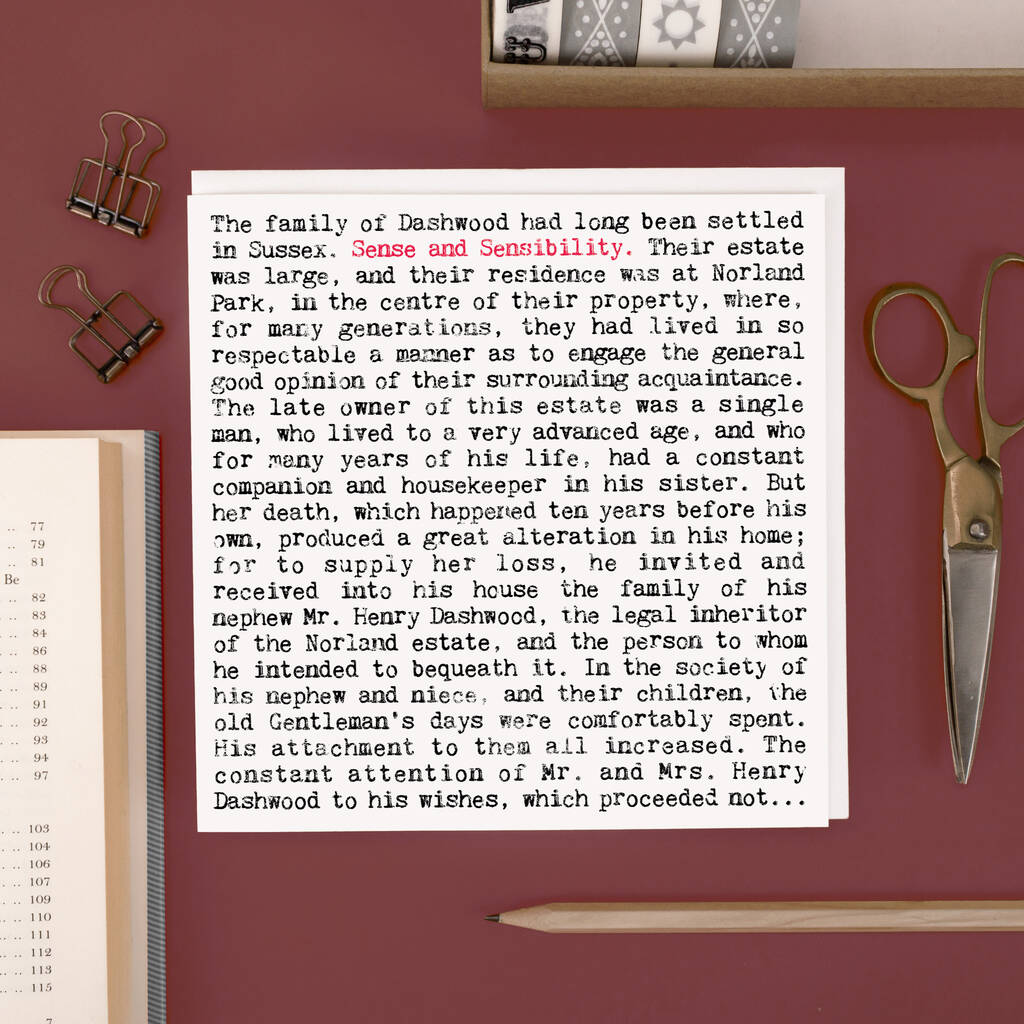 The family of Dashwood had long been settled
in Sussex. Sense and Sensibility. Their estate
was large, and their residence was at Norland
Park, in the centre of their property, where,
for many generations, they had lived in so
respectable a manner as to engage the general
good opinion of their surrounding acquaintance.
The late owner of this estate was a single
man, who lived to a very advanced age, and who
for many years of his life, had a constant
companion and housekeeper in his sister. But
her death, which happened ten years before his
own, produced a great alteration in his home;
for to supply her loss, he invited and
received into his house the family of his
nephew Mr. Henry Dashwood, the legal inheritor
of the Norland estate, and the person to whom
he intended to bequeath it. In the society of
his nephew and niece, and their children, the
old Gentleman's days were comfortably spent.
His attachment to them all increased. The
constant attention of Mr. and Mrs. Henry
Dashwood to his wishes, which proceeded not...
.. 77
.. 79
.. 81
Be
.. 82
.. 83
.. 84
.. 86
.. 88
.. 89
.. 91
.. 92
.. 93
.. 94
.. 97
.. .. 103
.. .. 104
.. .. 106
.. .. 107
.. .. 109
.. .. 110
.. .. 111
.. .. 112
.. .. 113
.. .. 115